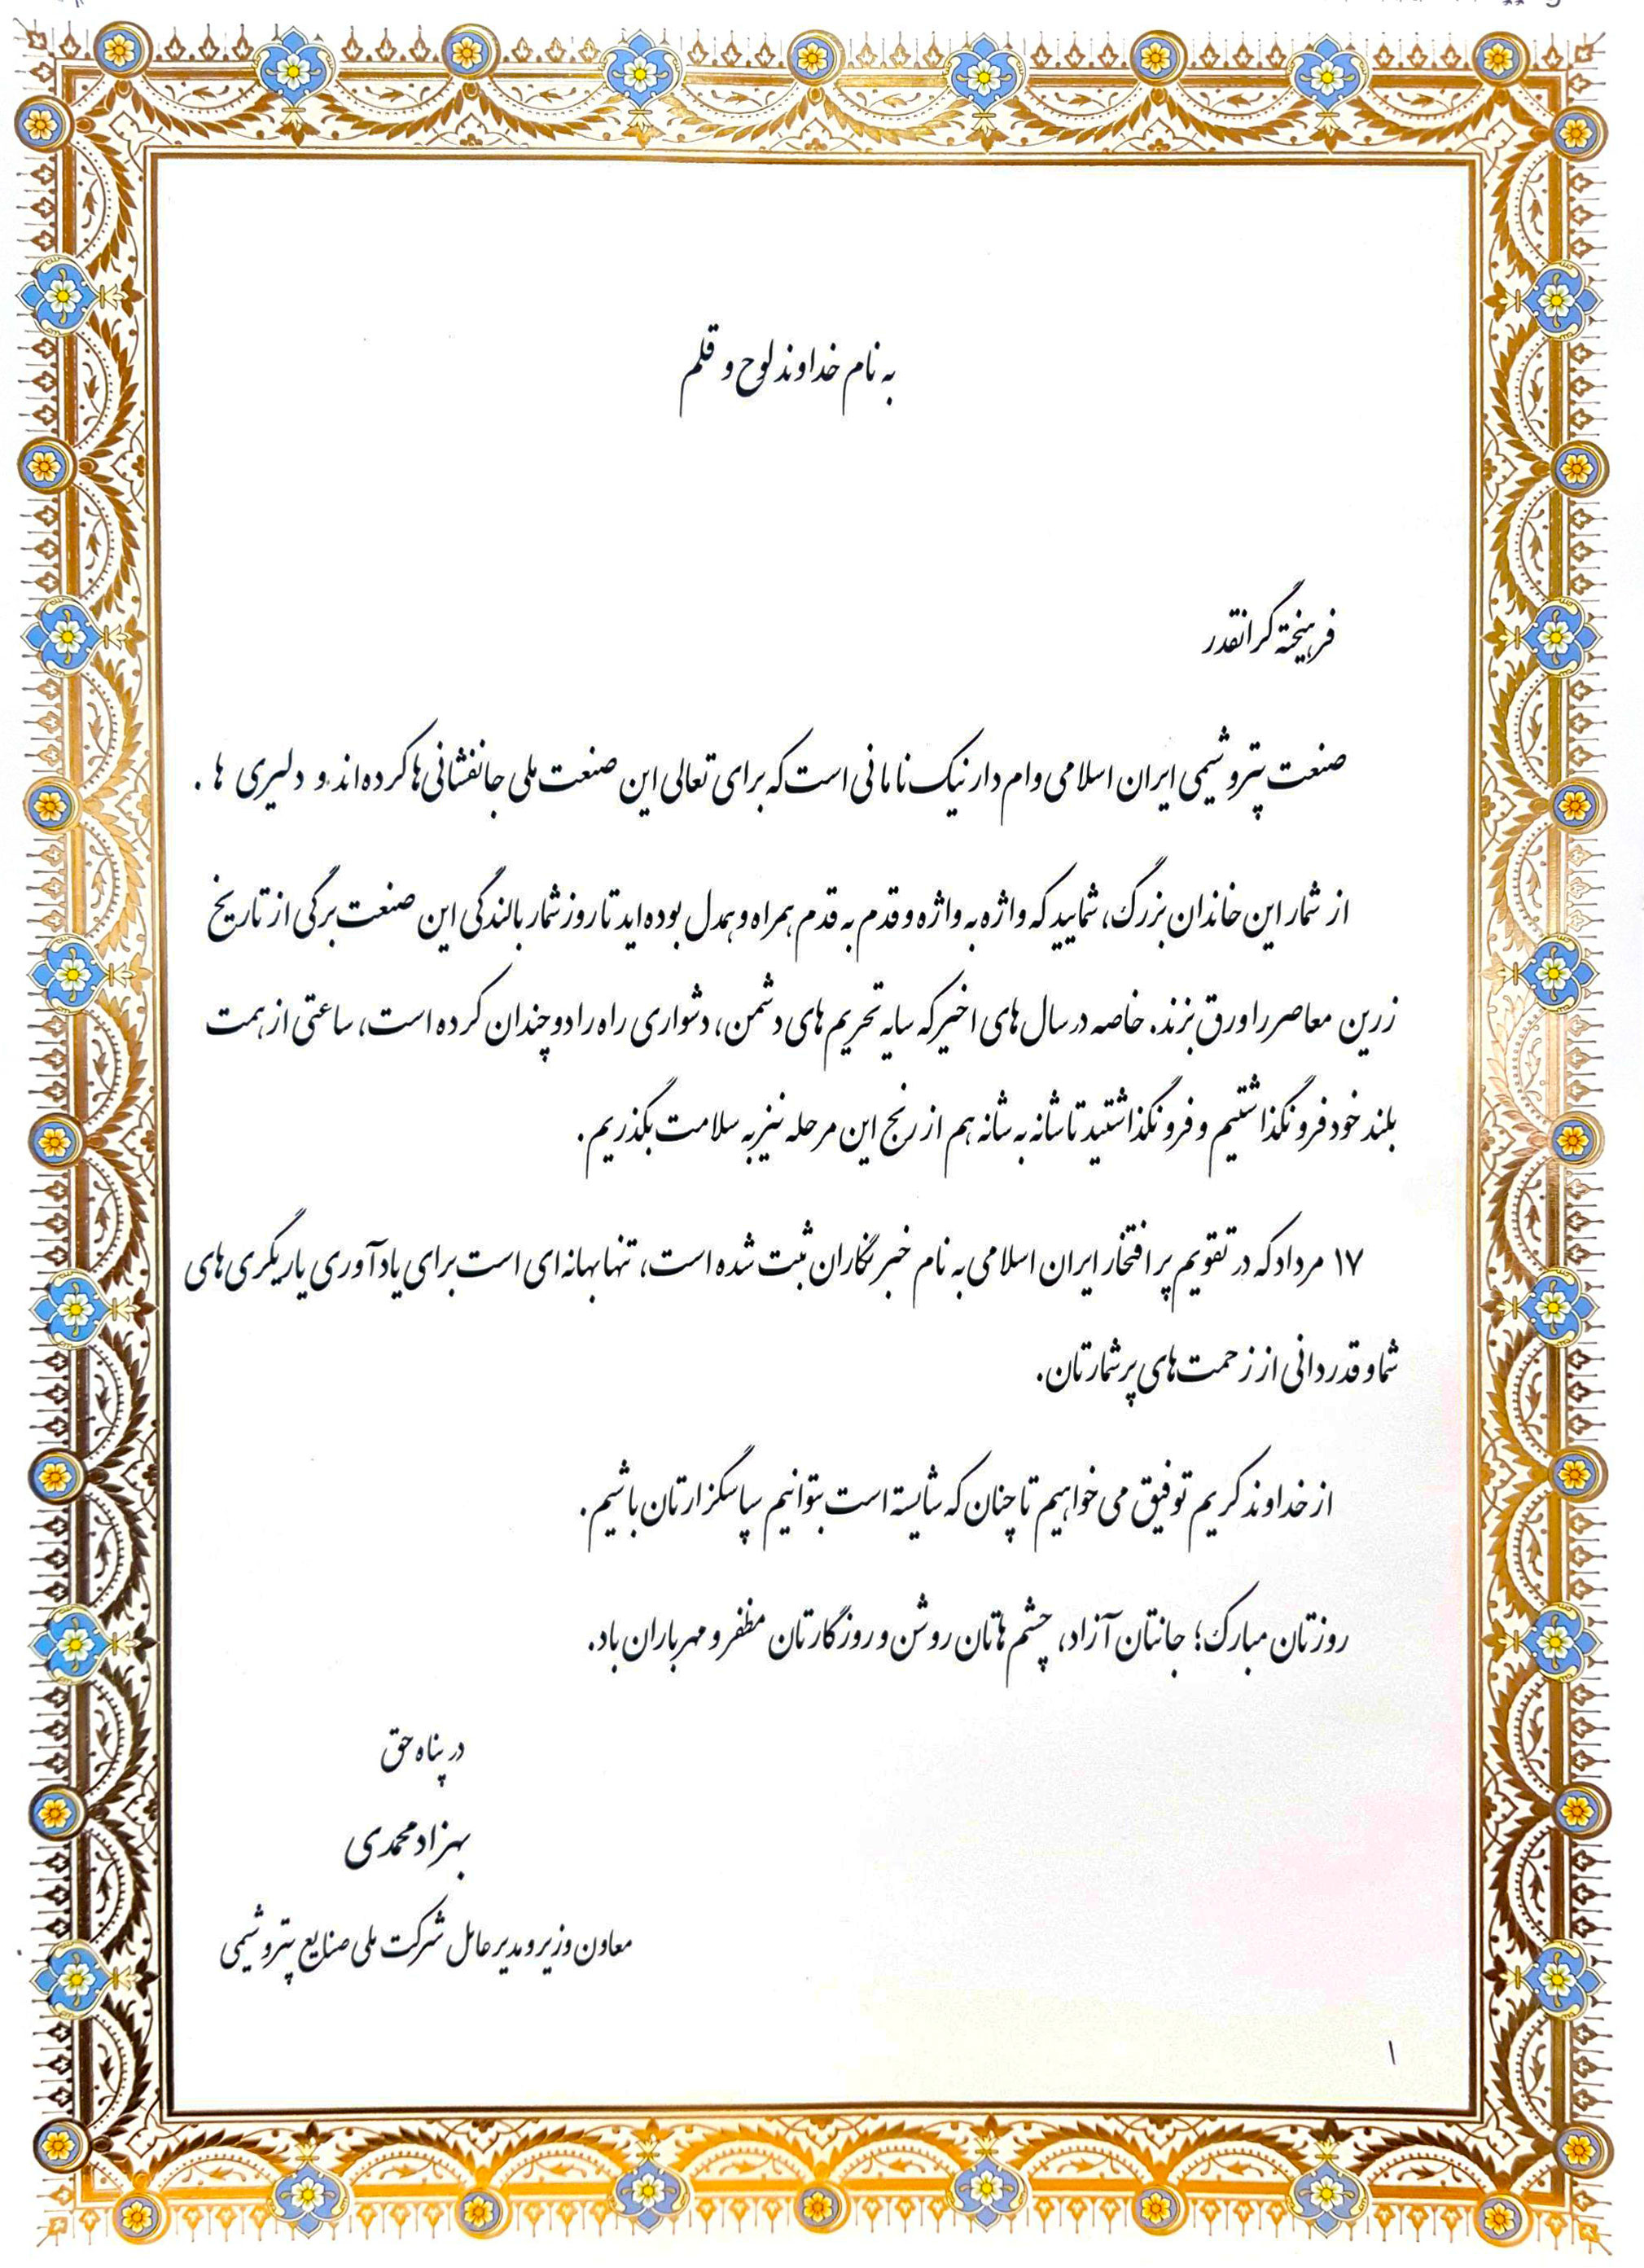 به نام خداوند لوح و قلم
فرهیخته گرانقدر
صنعت پتروشیمی ایران اسلامی وام دار نیک نامانی است که برای تعالی این صنعت ملی جانفشانی ها کرده اند و دلیری ها .
از شمار این خاندان بزرگ، شمایید که واژه به واژه و قدم به قدم همراه و همدل بوده اید تا روزشمار بالندگی این صنعت برگی از تاریخ
زرین معاصر را ورق بزند. خاصه در سال های اخیر که سایه تحریم های دشمن، دشواری راه را دو چندان کرده است، ساعتی از همت
بلند خود فرو نگذاشتیم و فرو نگذاشتید تا شانه به شانه هم از رنج این مرحله نیز به سلامت بگذریم.
۱۷ مرداد که در تقویم پر افتخار ایران اسلامی به نام خبرنگاران ثبت شده است، تنها بهانه ای است برای یادآوری یاریگری های
شما و قدردانی از زحمت های پرشمارتان.
از خداوند کریم توفیق می خواهیم تا چنان که شایسته است بتوانیم سپاسگزارتان باشیم.
روزتان مبارک؛ جانتان آزاد، چشم هاتان روشن و روزگارتان مظفر و مهرباران باد.
در پناه حق
بهزاد محمدی
معاون وزیر و مدیر عامل شرکت ملی صنایع پتروشیمی
۱